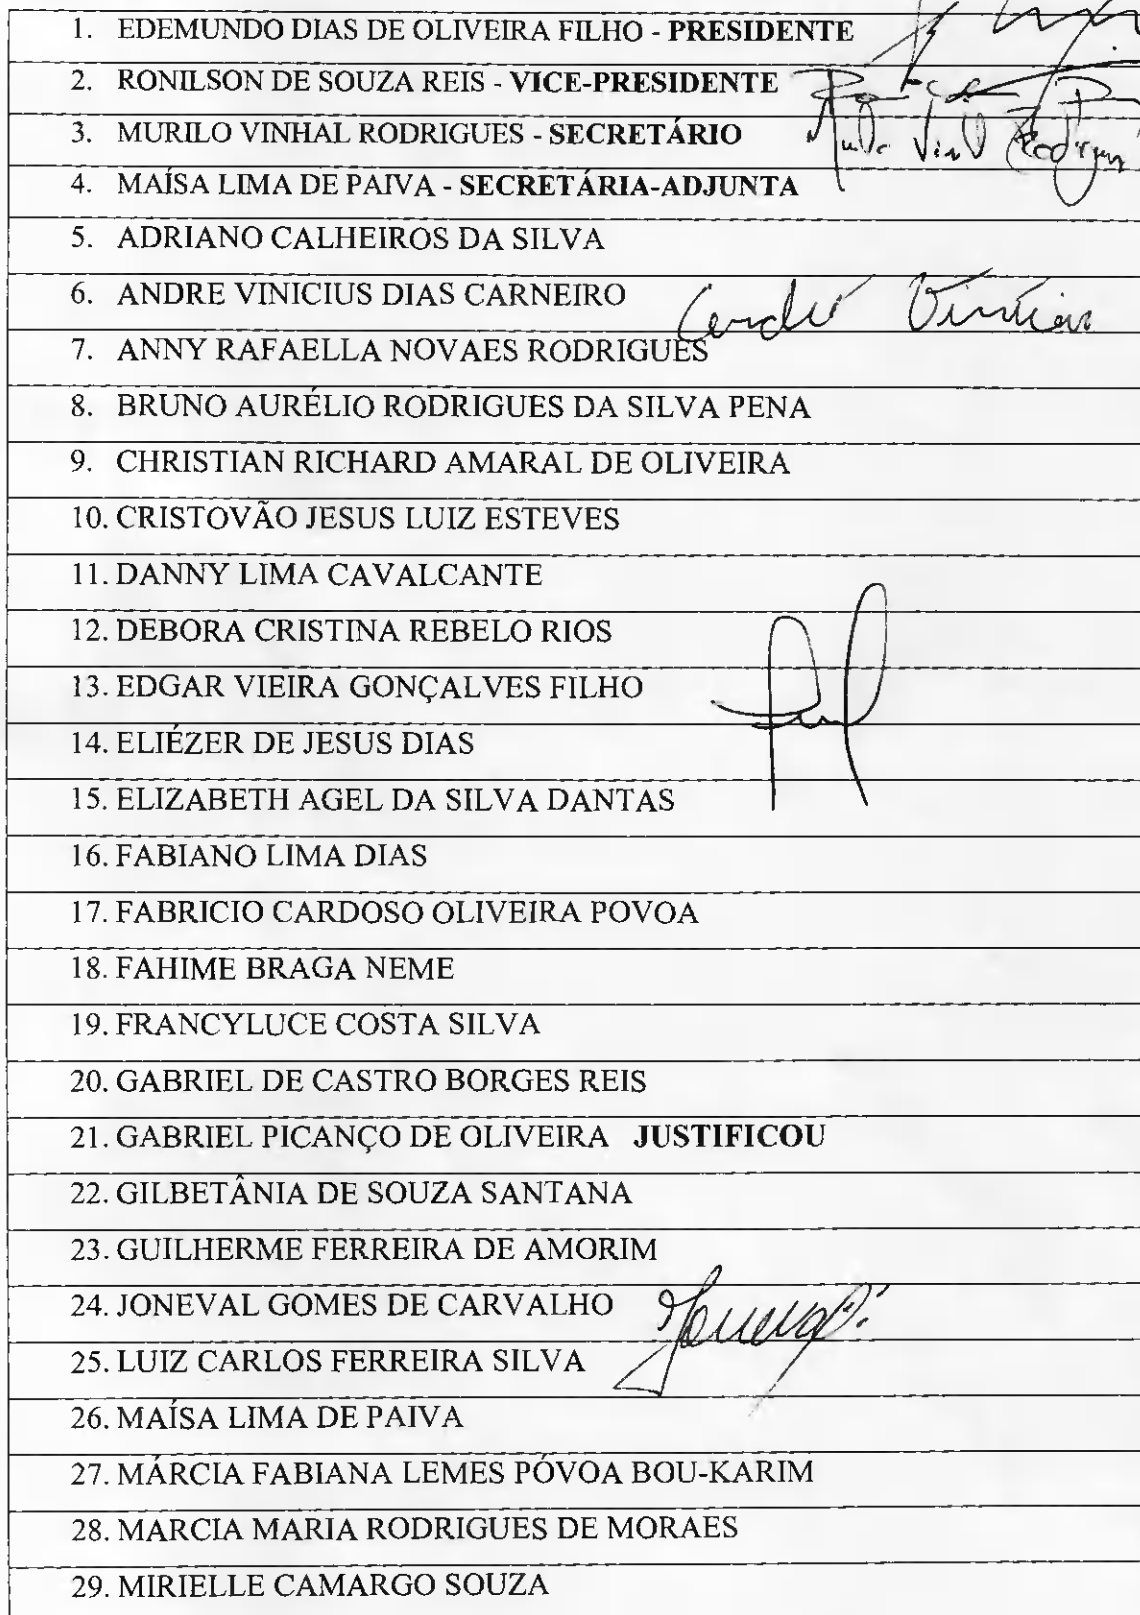 1. EDEMUNDO DIAS DE OLIVEIRA FILHO - PRESIDENTE
2. RONILSON DE SOUZA REIS - VICE-PRESIDENTE
3. MURILO VINHAL RODRIGUES - SECRETÁRIO
4. MAÍSA LIMA DE PAIVA - SECRETÁRIA-ADJUNTA
5. ADRIANO CALHEIROS DA SILVA
6. ANDRE VINICIUS DIAS CARNEIRO
7. ANNY RAFAELLA NOVAES RODRIGUES
8. BRUNO AURÉLIO RODRIGUES DA SILVA PENA
9. CHRISTIAN RICHARD AMARAL DE OLIVEIRA
10. CRISTOVÃO JESUS LUIZ ESTEVES
11. DANNY LIMA CAVALCANTE
12. DEBORA CRISTINA REBELO RIOS
13. EDGAR VIEIRA GONÇALVES FILHO
14. ELIÉZER DE JESUS DIAS
15. ELIZABETH AGEL DA SILVA DANTAS
16. FABIANO LIMA DIAS
17. FABRICIO CARDOSO OLIVEIRA POVOA
18. FAHIME BRAGA NEME
19. FRANCYLUCE COSTA SILVA
20. GABRIEL DE CASTRO BORGES REIS
21. GABRIEL PICANÇO DE OLIVEIRA JUSTIFICOU
22. GILBETÂNIA DE SOUZA SANTANA
23. GUILHERME FERREIRA DE AMORIM
24. JONEVAL GOMES DE CARVALHO
25. LUIZ CARLOS FERREIRA SILVA
26. MAÍSA LIMA DE PAIVA
27. MÁRCIA FABIANA LEMES PÓVOA BOU-KARIM
28. MARCIA MARIA RODRIGUES DE MORAES
29. MIRIELLE CAMARGO SOUZA